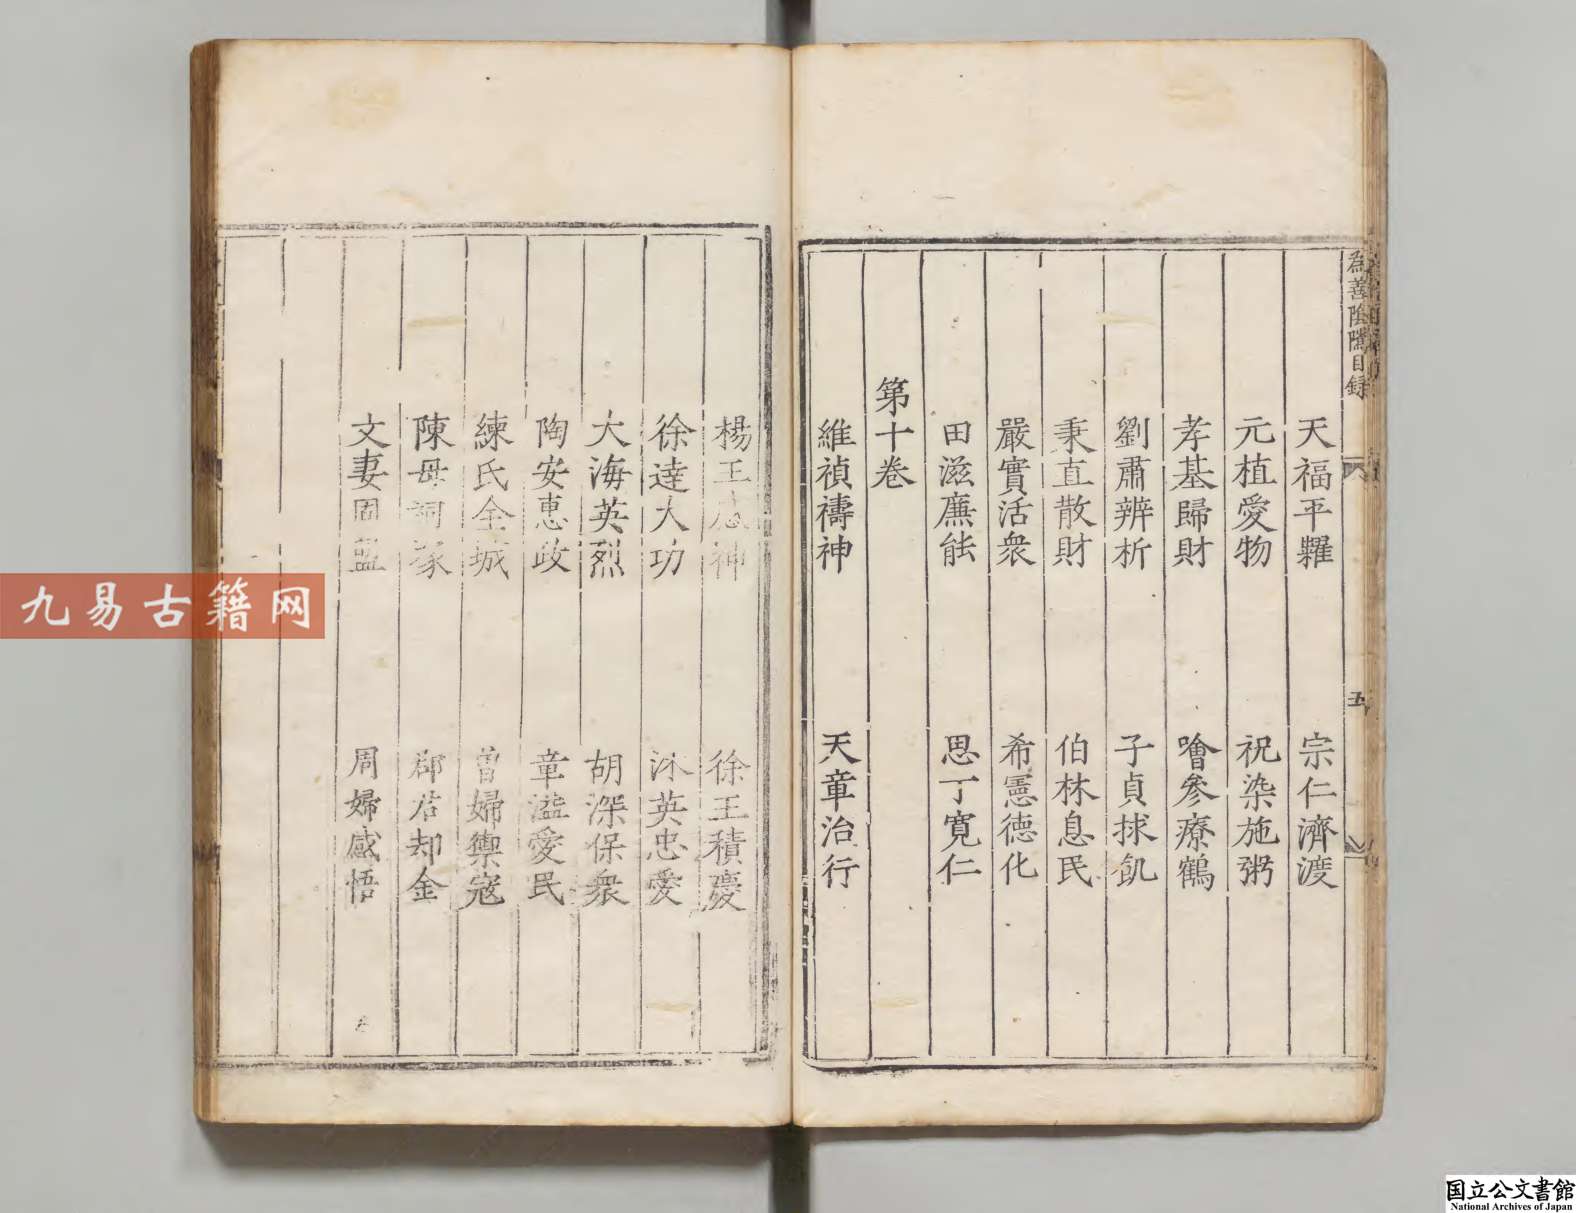 為善陰隲目録
五
天福平糶 宗仁濟渡
元植愛物 祝染施粥
孝基歸財 噲參療鶴
劉肅辨析 子貞捄飢
秉直散財 伯林息民
嚴實活衆 希憲德化
田滋廉能 思丁寛仁
第十卷
維禎禱神 天章治行
楊王 神 徐王積慶
徐逹大功 沐英忠愛
大海英烈 胡深保衆
陶安惠政 章溢愛民
練氏全城 曾婦禦寇
陳母祠冢 鄒君却金
文妻 盥 周婦感悟
九易古籍网
国立公文書館
National Archives of Japan